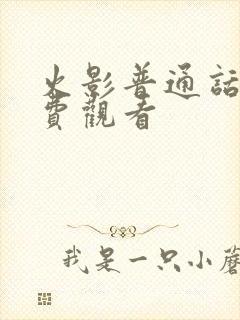 火影普通話
費觀看
我是一只小蘑